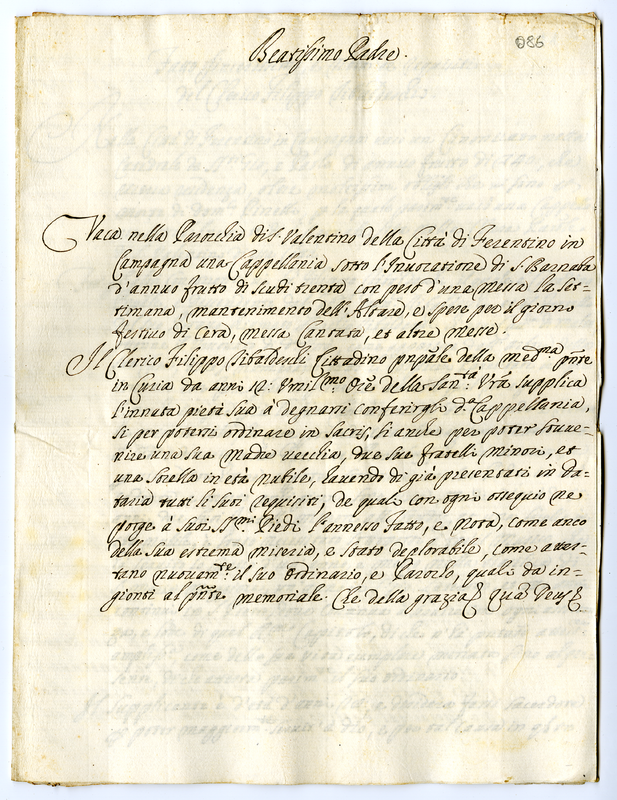 086
Beatissimo Padre.
Vaca nella Parocchia di S. Valentino della Città di Ferentino in
Campagna una Cappellania sotto l'Invocatione di S. Barnaba
d'annuo frutto di scudi trenta con peso d'una messa la set=
timana, mantenimento dell'Altare, e spese per il giorno
festivo di Cera, messa Cantata, et altre messe.
Il Clerico Filippo Cittadino pnpale della medma pnte
in Curia da anni 12: Vmilmo Ore della Santà Vra supplica
l'innata pietà sua à degnarsi conferirgli da Cappellania,
si per potersi ordinare in sacris, si anche per poter souue=
nire una sua Madre vecchia, due sue fratelli minori, et
una sorella in età nubile, havendo di già presentati in Da=
taria tutti li suoi requisiti, de quali con ogni ossequio ne
porge à suoi Smi Piedi l'annesso fatto, e nota, come anco
della sua estrema miseria, e stato deplorabile, come attes=
tano nuouamte il suo Ordinario, e Parocho, quali da in=
gionti al pnte memoriale. Che della grazia quā Deus